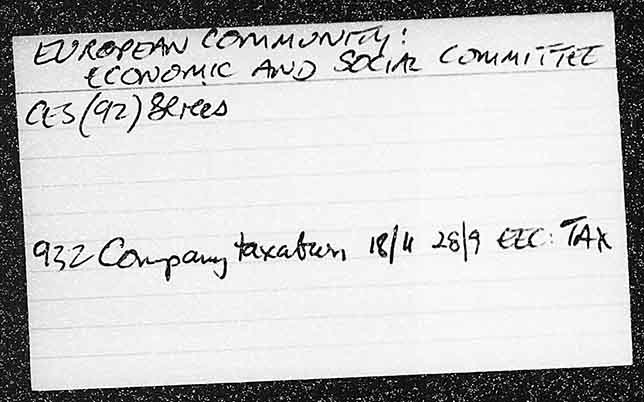 EUROPEAN COMMUNITY:
ECONOMIC AND SOCIAL COMMITTEE
CES (92) Series
932 Company taxation 18/11 28/9 EEC: TAX